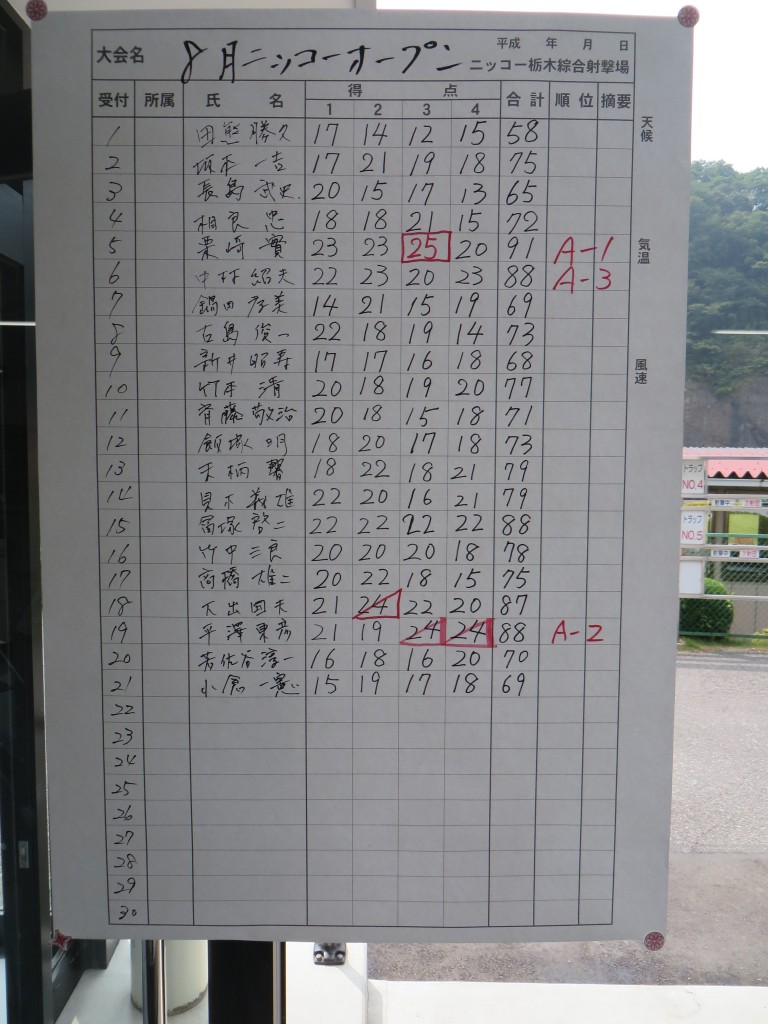 大会名 8月ニッコーオープン 平成 年 月 日
ニッコー栃木綜合射撃場
受付 所属 氏 名 得 点 合計 順位 摘要
1 2 3 4
天候
気温
風速
1 田熊勝久 17 14 12 15 58
2 坂本一吉 17 21 19 18 75
3 長島武史 20 15 17 13 65
4 相良忠 18 18 21 15 72
5 栗崎實 23 23 25 20 91 A-1
6 中村紹夫 22 23 20 23 88 A-3
7 鍋田 美 14 21 15 19 69
8 古島俊一 22 18 19 14 73
9 新井昭寿 17 17 16 18 68
10 竹本清 20 18 19 20 77
11 齊藤敬治 20 18 15 18 71
12 飯塚明 18 20 17 18 73
13 18 22 18 21 79
14 貝木義雄 22 20 16 21 79
15 冨塚啓二 22 22 22 22 88
16 竹中三良 20 20 20 18 78
17 高橋雄二 20 22 18 15 75
18 大出 夫 21 24 22 20 87
19 平澤東彦 21 19 24 24 88 A-2
20 若佐谷淳一 16 18 16 20 70
21 小倉一憲 15 19 17 18 69
22
23
24
25
26
27
28
29
30
トラップ
NO.4
トラップ
NO.5